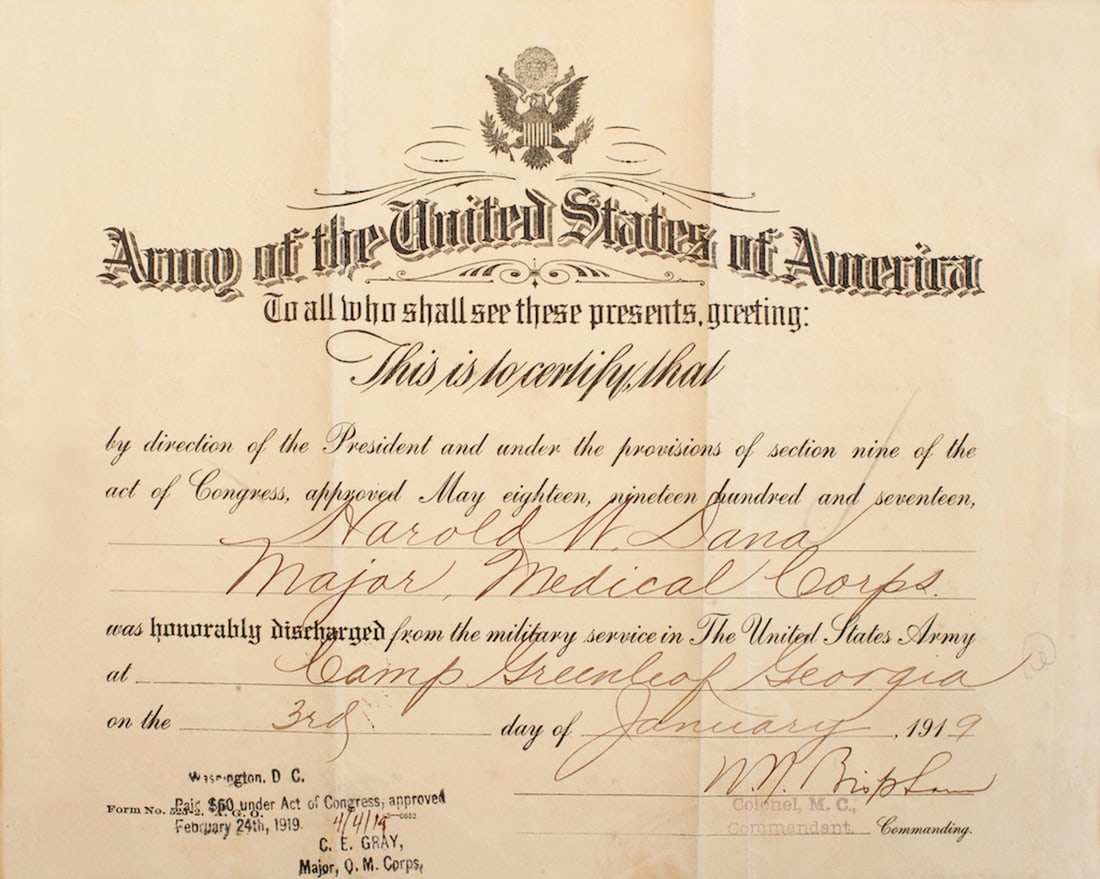 Army of the United States of America
To all who shall see these presents, greeting:
This is to certify, that
by direction of the President and under the provisions of section nine of the
act of Congress, approved May eighteen, nineteen hundred and seventeen,
Harold W. Dana
Major, Medical Corps.
was honorably discharged from the military service in The United States Army
at Camp Greenleaf Georgia
on the 3rd day of January, 1919
Washington, D C.
Form No. 525-2. A. G. O.
Paid $60 under Act of Congress, approved
February 24th, 1919. 4/4/19
C. E. GRAY,
Major, Q. M. Corps,
Colonel, M. C.,
Commandant. Commanding.